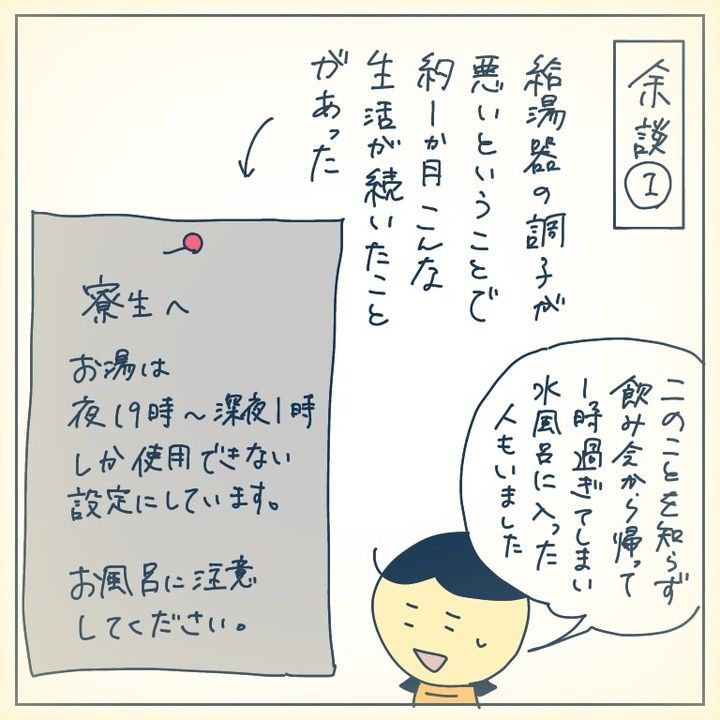 余談①
給湯器の調子が
悪いということで
約一か月こんな
生活が続いたこと
があった
寮生へ
お湯は
夜19時～深夜1時
しか使用できない
設定にしています。
お風呂に注意
してください。
このことを知らず
飲み会から帰って
1時過ぎてしまい
水風呂に入った
人もいました